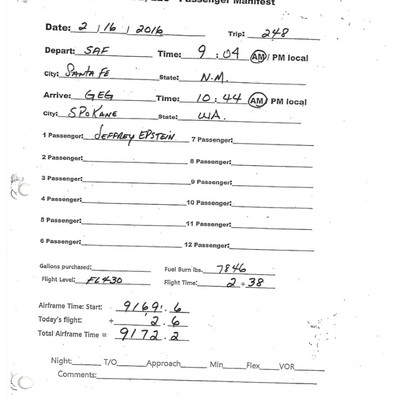 Passenger Manifest
Date: 2 / 16 / 2016 Trip: 248
Depart: SAF Time: 9 : 04 AM / PM local
City: SANTA FE State: N.M.
Arrive: GEG Time: 10 : 44 AM / PM local
City: SPOKANE State: WA.
1 Passenger: JEFFREY EPSTEIN 7 Passenger:
2 Passenger: 8 Passenger:
3 Passenger: 9 Passenger:
4 Passenger: 10 Passenger:
5 Passenger: 11 Passenger:
6 Passenger: 12 Passenger:
Gallons purchased: Fuel Burn lbs. 7846
Flight Level: FL430 Flight Time: 2 + 38
Airframe Time: Start: 9169.6
Today's flight: + 2.6
Total Airframe Time = 9172.2
Night: T/O Approach Min Flex VOR
Comments: